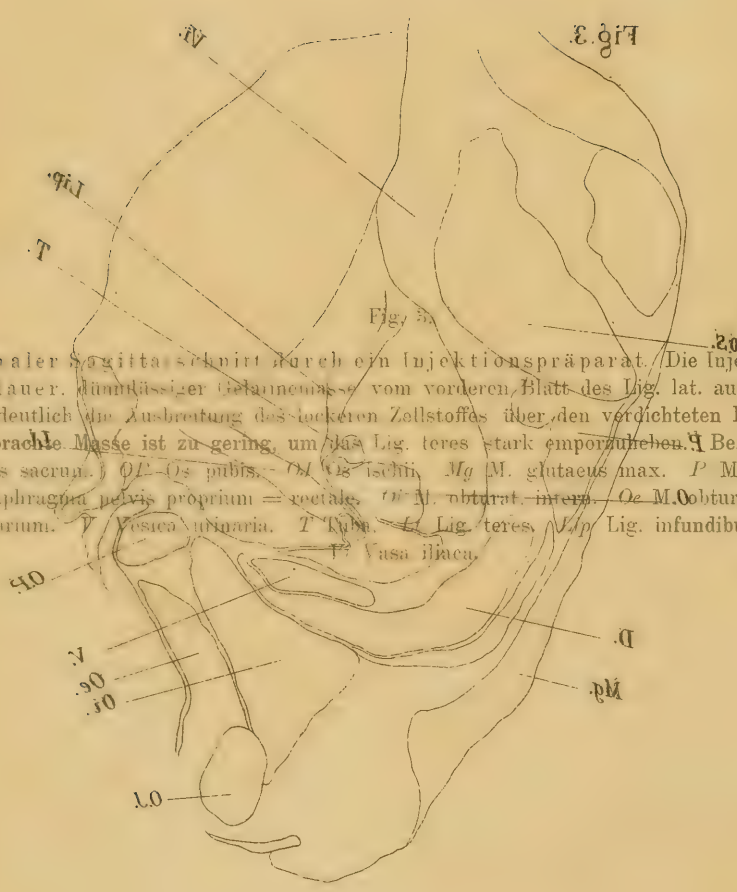 Fig. 3.
Vi.
Lip.
T.
Fig. 3.
aler Sagittalschnitt durch ein Injektionspräparat. Die Inje
lauer, dünnflüssiger Gelatinemasse vom vorderen Blatt des Lig. lat. au
deutlich die Ausbreitung des lockeren Zellstoffes über den verdichteten
brachte Masse ist zu gering, um das Lig. teres stark emporzuheben. Be
s sacrum. OP Os pubis. OI Os ischii. Mg M. glutaeus max. P M
aphragma pelvis proprium = rectale. Oi M. obturat. intern. Oe M. obtur
rium. V Vesica urinaria. T Tuba. Lt Lig. teres. Lip Lig. infundibu
Vi Vasa iliaca.
o.s.
Lt.
P.
O.
O.P.
V.
Oe.
Oi.
D.
Mg.
O.I.